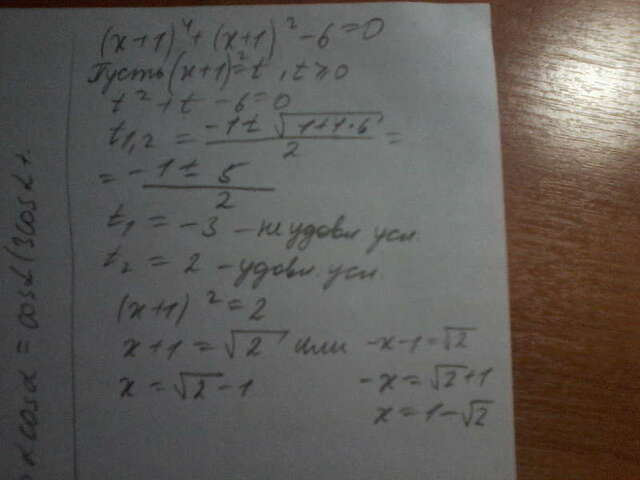 (x+1)⁴+(x+1)²-6=0
Пусть (x+1)²=t, t≥0
t²+t-6=0
t₁,₂ = (-1±√(1+4·6))/2 =
= (-1±5)/2
t₁ = -3 - не удовл усл.
t₂ = 2 - удовл. усл
(x+1)²=2
x+1=√2 или -x-1=√2
x=√2-1 -x=√2+1
x=1-√2
cosα = cosα(3cosα+